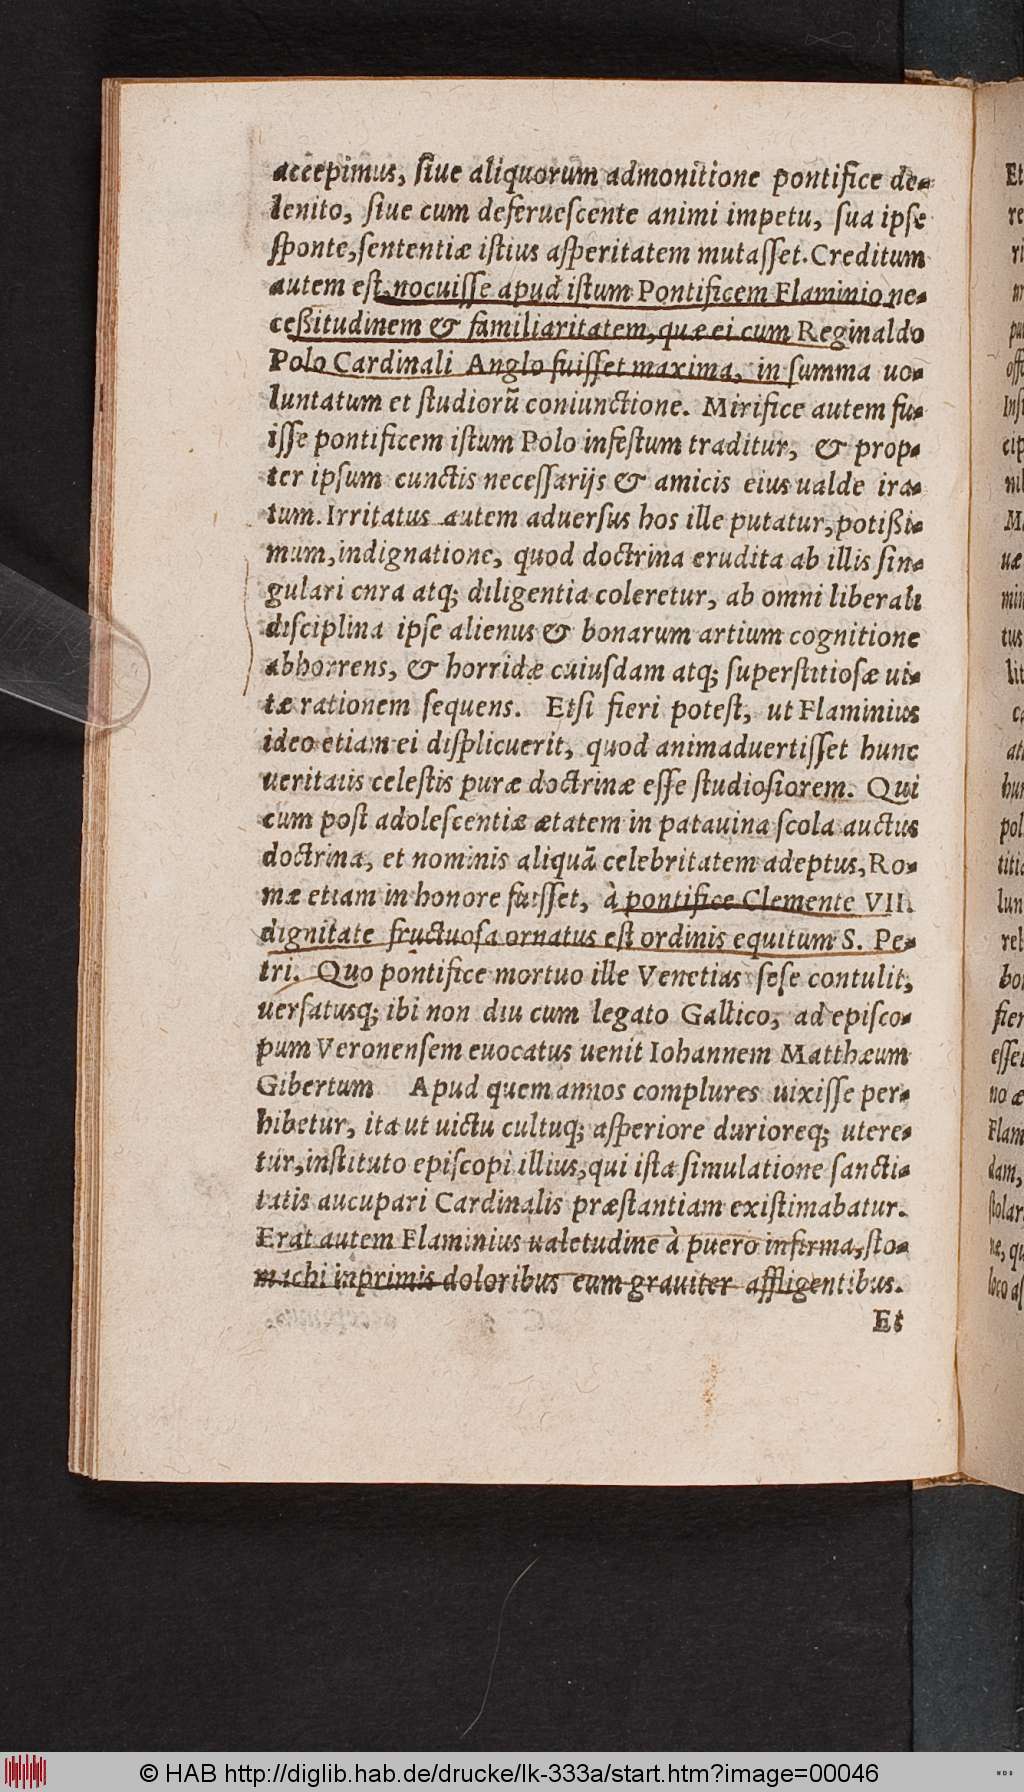 accepimus, ſiue aliquorum admonitione pontifice de-
lenito, ſiue cum deferueſcente animi impetu, ſua ipſe
ſponte, ſententiæ iſtius aſperitatem mutaſſet. Creditum
autem eſt, nocuiſſe apud iſtum Pontificem Flaminio ne-
ceßitudinem & familiaritatem, quæ ei cum Reginaldo
Polo Cardinali Anglo fuiſſet maxima, in ſumma uo-
luntatum et ſtudiorũ coniunctione. Mirifice autem fu-
iſſe pontificem iſtum Polo infeſtum traditur, & prop-
ter ipſum cunctis neceſſarijs & amicis eius ualde ira-
tum. Irritatus autem aduerſus hos ille putatur, potißi-
mum, indignatione, quod doctrina erudita ab illis ſin-
gulari cnra atq; diligentia coleretur, ab omni liberali
diſciplina ipſe alienus & bonarum artium cognitione
abhorrens, & horridæ cuiuſdam atq; ſuperſtitioſæ ui-
tæ rationem ſequens. Etſi fieri poteſt, ut Flaminius
ideo etiam ei diſplicuerit, quod animaduertiſſet hunc
ueritatis celeſtis puræ doctrinæ eſſe ſtudioſiorem. Qui
cum poſt adoleſcentiæ ætatem in patauina ſcola auctus
doctrina, et nominis aliquã celebritatem adeptus, Ro-
mæ etiam in honore fuiſſet, à pontifice Clemente VII.
dignitate fructuoſa ornatus eſt ordinis equitum S. Pe-
tri. Quo pontifice mortuo ille Venetias ſeſe contulit,
uerſatusq; ibi non diu cum legato Gallico, ad epiſco-
pum Veronenſem euocatus uenit Iohannem Matthæum
Gibertum Apud quem annos complures uixiſſe per-
hibetur, ita ut uictu cultuq; aſperiore durioreq; utere-
tur, inſtituto epiſcopi illius, qui iſta ſimulatione ſancti-
tatis aucupari Cardinalis præſtantiam exiſtimabatur.
Erat autem Flaminius ualetudine à puero infirma, ſto-
machi inprimis doloribus eum grauiter affligentibus.
Et
© HAB http://diglib.hab.de/drucke/lk-333a/start.htm?image=00046